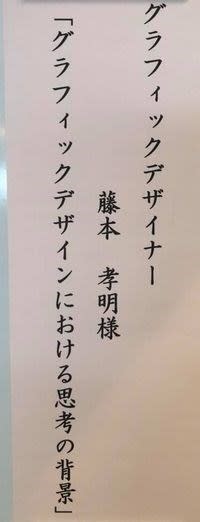 グラフィックデザイナー
藤本 孝明様
「グラフィックデザインにおける思考の背景」